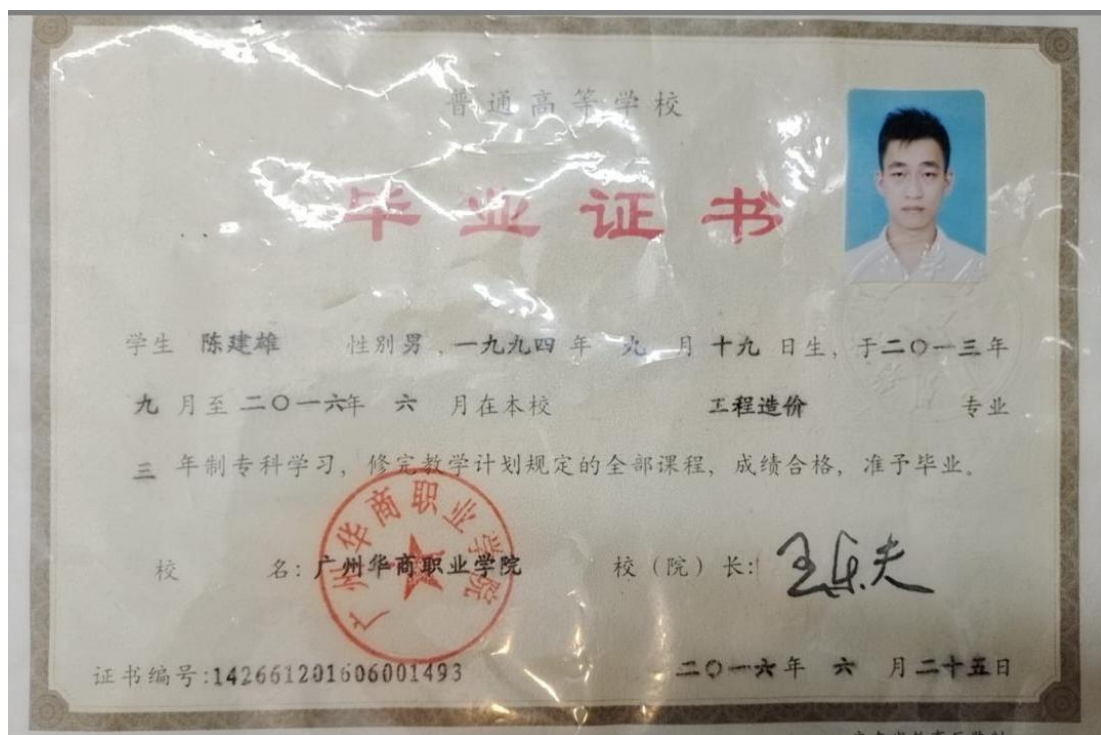 普通高等学校
毕业证书
学生 陈建雄 性别 男 ，一九九四 年 九 月 十九 日生，于二〇一三年
九 月至 二〇一六年 六 月在本校 工程造价 专业
三 年制专科学习，修完教学计划规定的全部课程，成绩合格，准予毕业。
广州华商职业学院
校 名：广州华商职业学院 校（院）长：王乐夫
证书编号:142661201606001493 二〇一六年 六 月二十五日